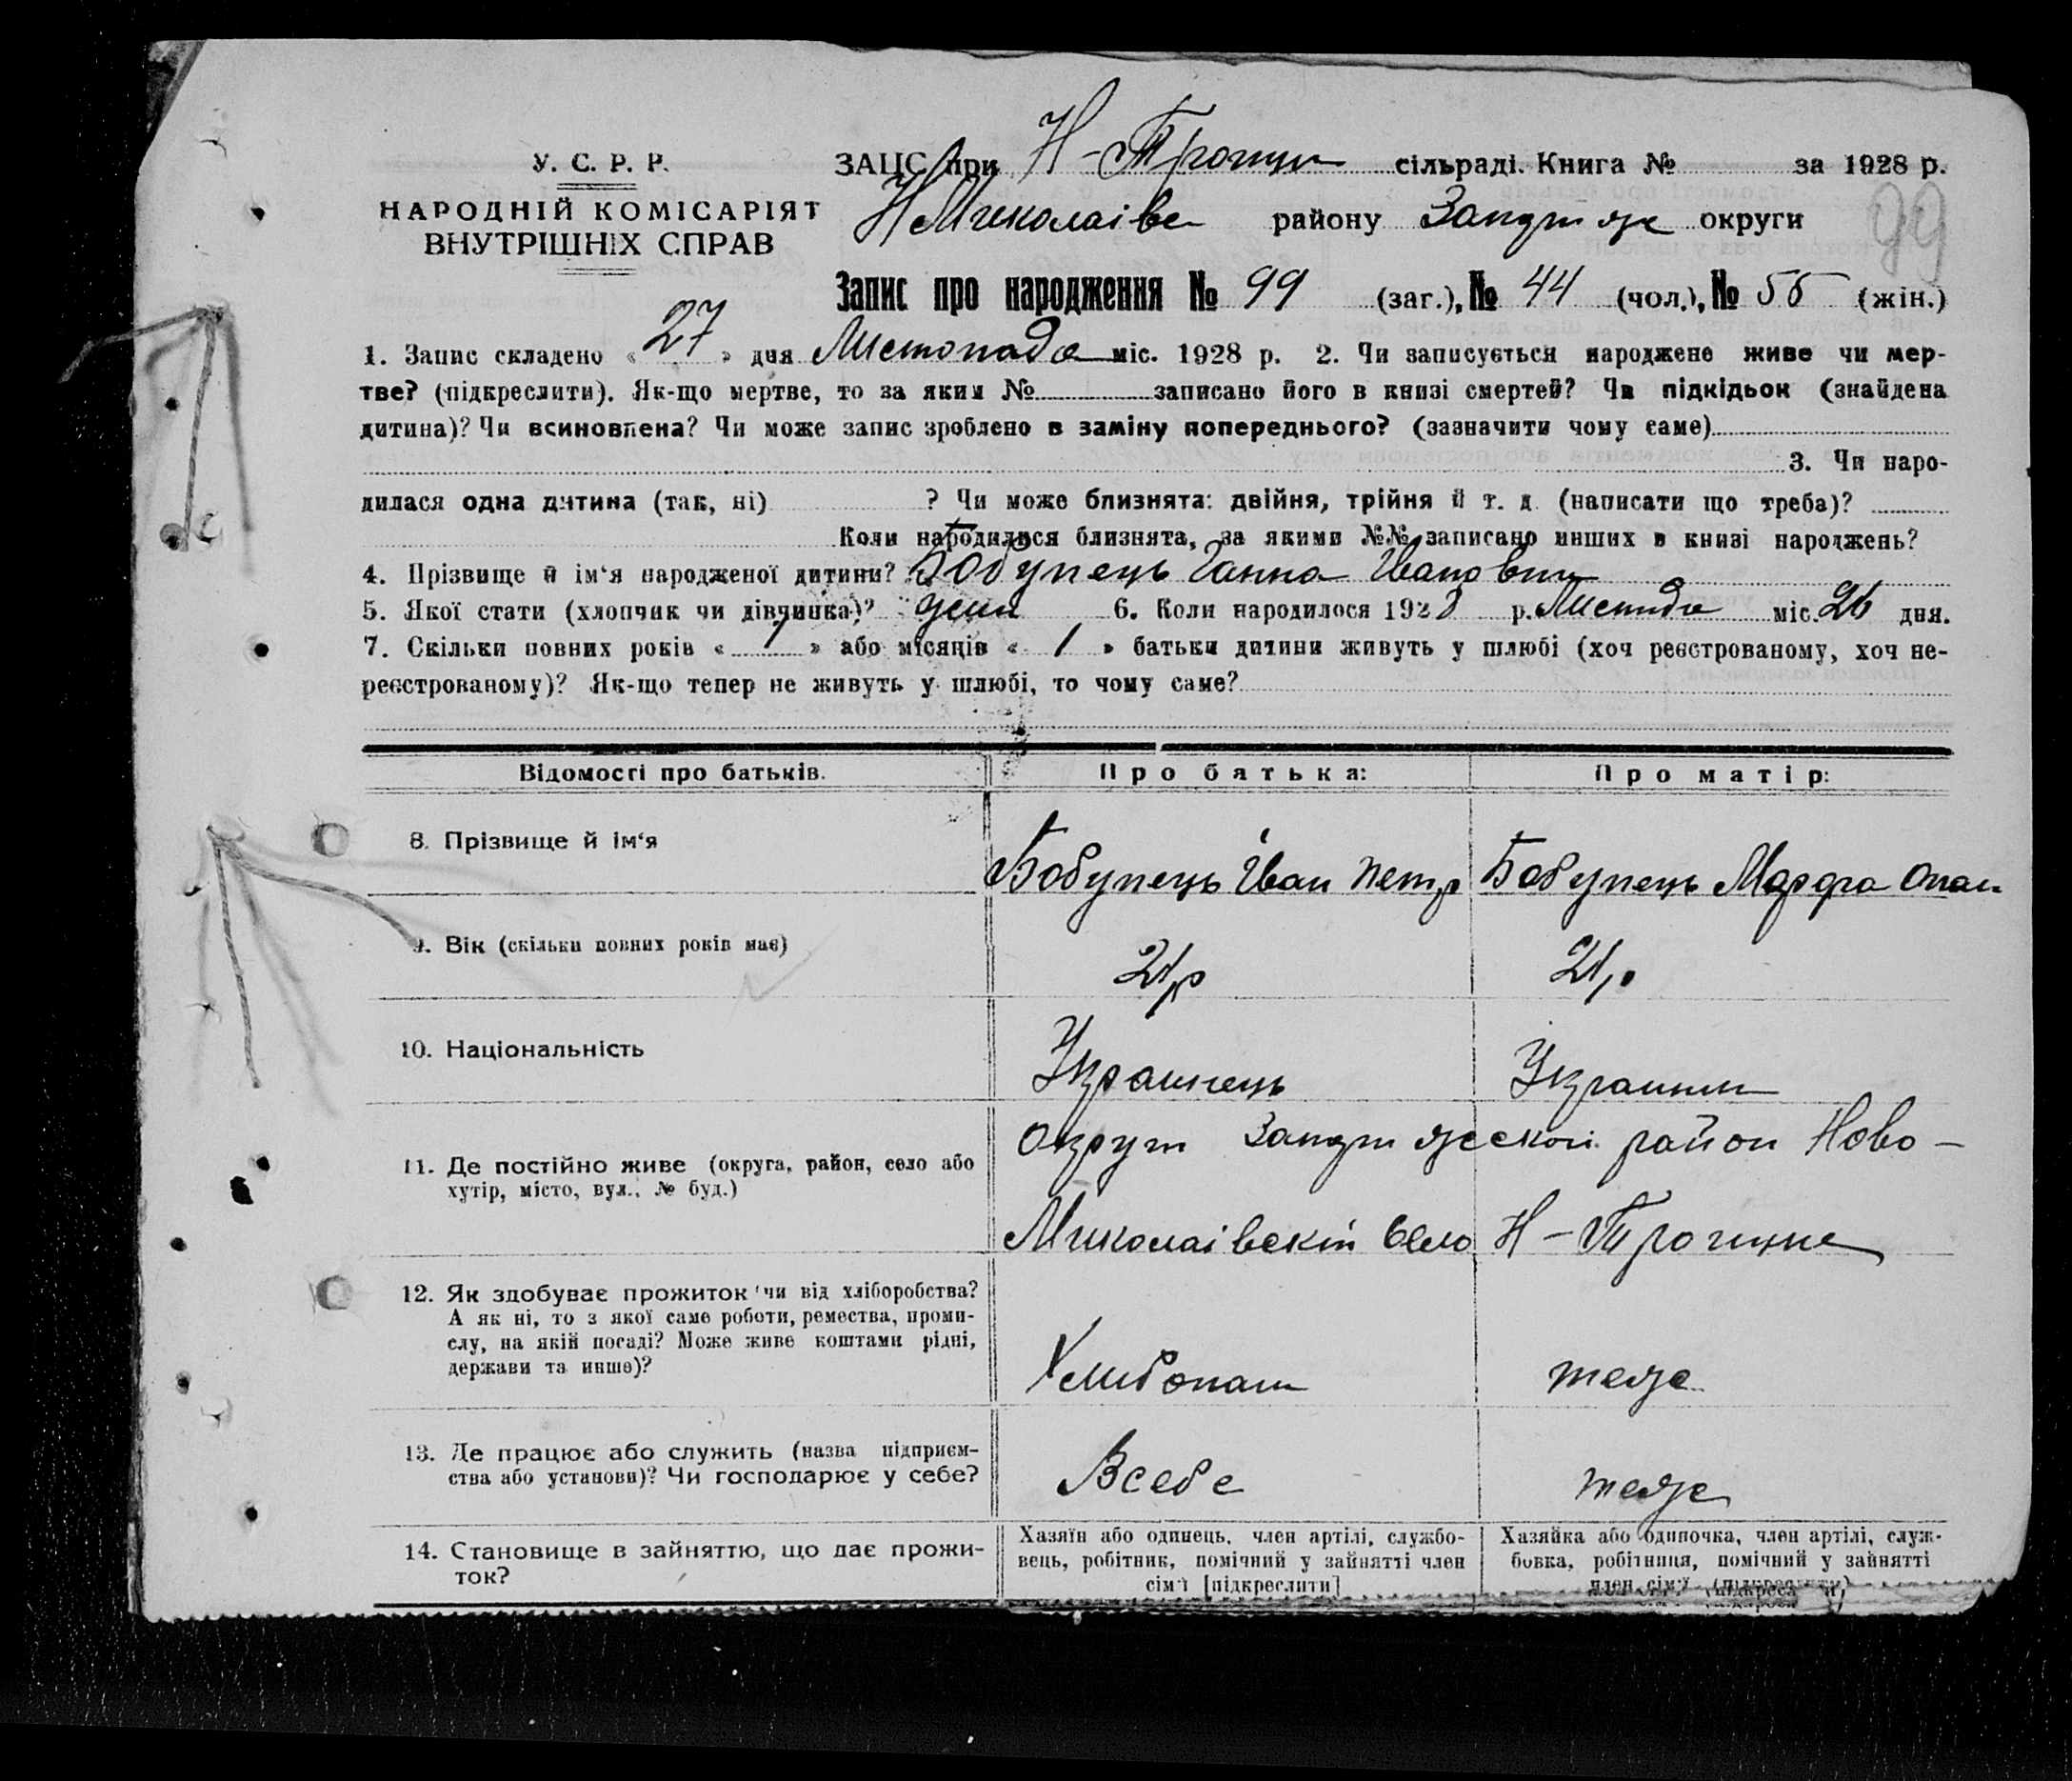 У. С. Р. Р.
НАРОДНІЙ КОМІСАРІЯТ
ВНУТРІШНІХ СПРАВ
ЗАЦС при Н-Троицк сільраді. Книга № за 1928 р.
НМиколаівс району Запоріж округи
99
Запис про народження № 99 (заг.), № 44 (чол.), № 55 (жін.)
1. Запис складено « 27 » дня Листопада міс. 1928 р. 2. Чи записується народжене живе чи мер-
тве? (підкреслити). Як-що мертве, то за яким № записано його в книзі смертей? Чи підкідьок (знайдена
дитина)? Чи всиновлена? Чи може запис зроблено в заміну попереднього? (зазначити чому саме)
3. Чи наро-
дилася одна дитина (так, ні) ? Чи може близнята: двійня, трійня й т. д. (написати що треба)?
Коли народилися близнята, за якими №№ записано инших в книзі народжень?
4. Прізвище й ім'я народженої дитини? Бобунець Ганна Івановни
5. Якої стати (хлопчик чи дівчинка)? жен 6. Коли народилося 1928 р. міс. 26 дня.
7. Скільки повних років « 1 » або місяців « 1 » батьки дитини живуть у шлюбі (хоч реєстрованому, хоч не-
реєстрованому)? Як-що тепер не живуть у шлюбі, то чому саме?
Відомості про батьків. Про батька: Про матір:
8. Прізвище й ім'я
Бобунець Іван Петр Бобунець Марфа Опан
9. Вік (скільки повних років має)
21р 21р
10. Національність
Украинець Украинк
11. Де постійно живе (округа, район, село або
хутір, місто, вул., № буд.)
Округи район Ново-
Миколаівский Село Н-Троицке
12. Як здобуває прожиток чи від хліборобства?
А як ні, то з якої саме роботи, ремества, проми-
слу, на якій посаді? Може живе коштами рідні,
держави та инше)?
Хлибопаш теже
13. Де працює або служить (назва підприєм-
ства або установи)? Чи господарює у себе?
Всебе теже
14. Становище в зайняттю, що дає прожи-
ток?
Хазяїн або одинець, член артілі, службо-
вець, робітник, помічний у зайнятті член
сім'ї [підкреслити]
Хазяйка або одиночка, член артілі, служ-
бовка, робітниця, помічний у зайнятті
член сім'ї (підкреслити)